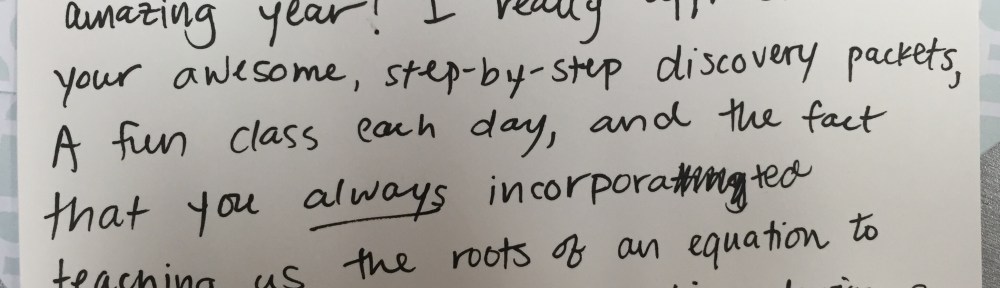 amazing year! I really
your awesome, step-by-step discovery packets,
A fun class each day, and the fact
that you always incorporated
teaching us the roots of an equation to